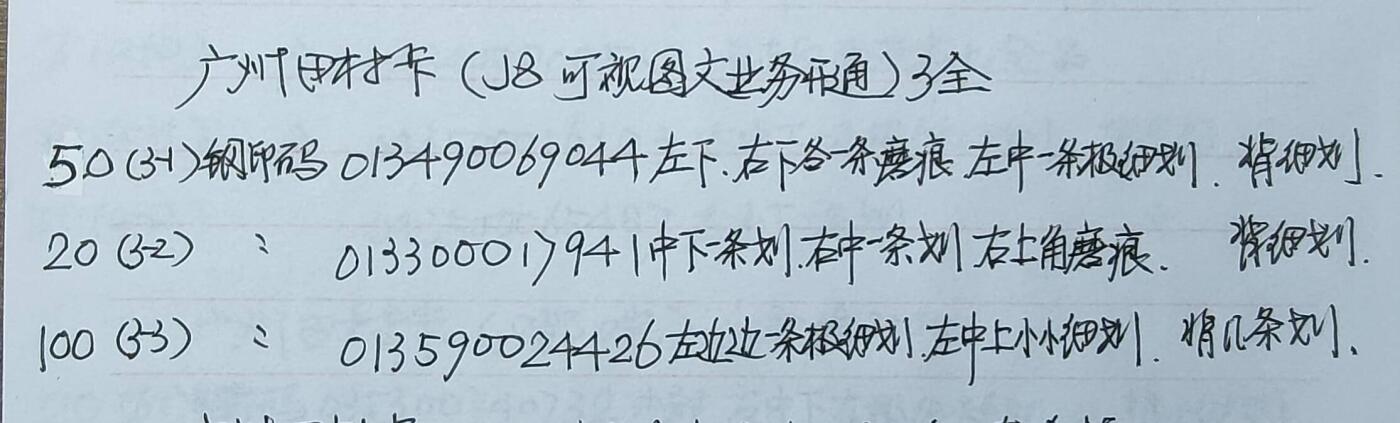 广州田村卡（J8可视图文业务开通）3全
50（3-1）钢印码 013490069044 左下、右下各一条磨痕 左中一条极细划、背细划、
20（3-2） ： 013300017941 中下一条划、右中一条划 右上角磨痕、 背细划、
100（3-3） ： 013590024426 左边边一条极细划、左中上小小细划、背几条划、